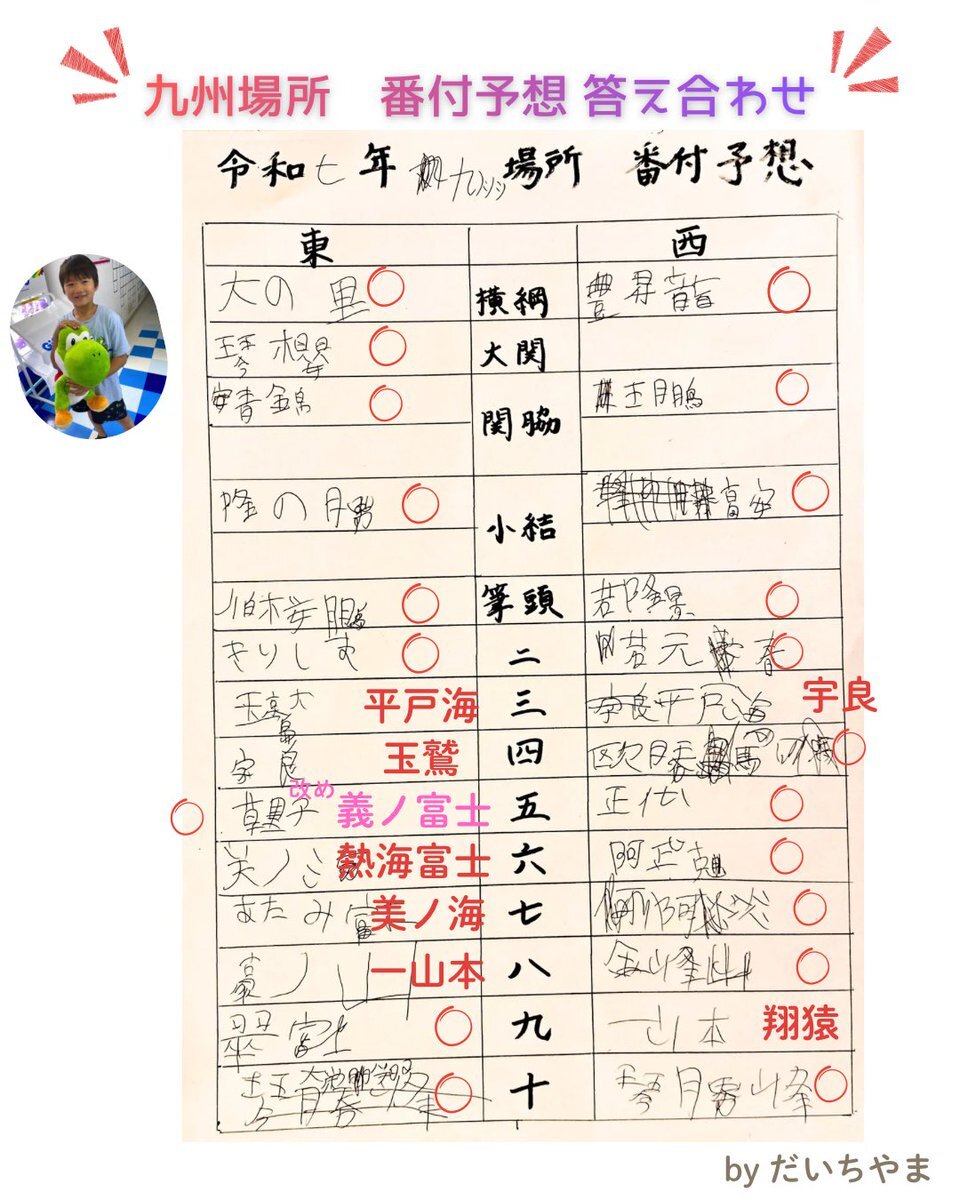 九州場所　番付予想 答え合わせ
令和七年 九州場所 番付予想
東 西
大の里 横綱 豊昇龍
琴櫻 大関
安青錦 関脇 王鵬
隆の勝 小結 高安
伯桜鵬 筆頭 若隆景
きりしま 二 若元春
玉鷲 平戸海 三 平戸海 宇良
宇良 玉鷲 四 欧勝馬
草野 改め 義ノ富士 五 正代
美ノ海 熱海富士 六 阿武剋
あたみ富士 美ノ海 七 阿炎
豪ノ山 一山本 八 金峰山
翠富士 九 一山本 翔猿
十 琴勝峰
by だいちやま